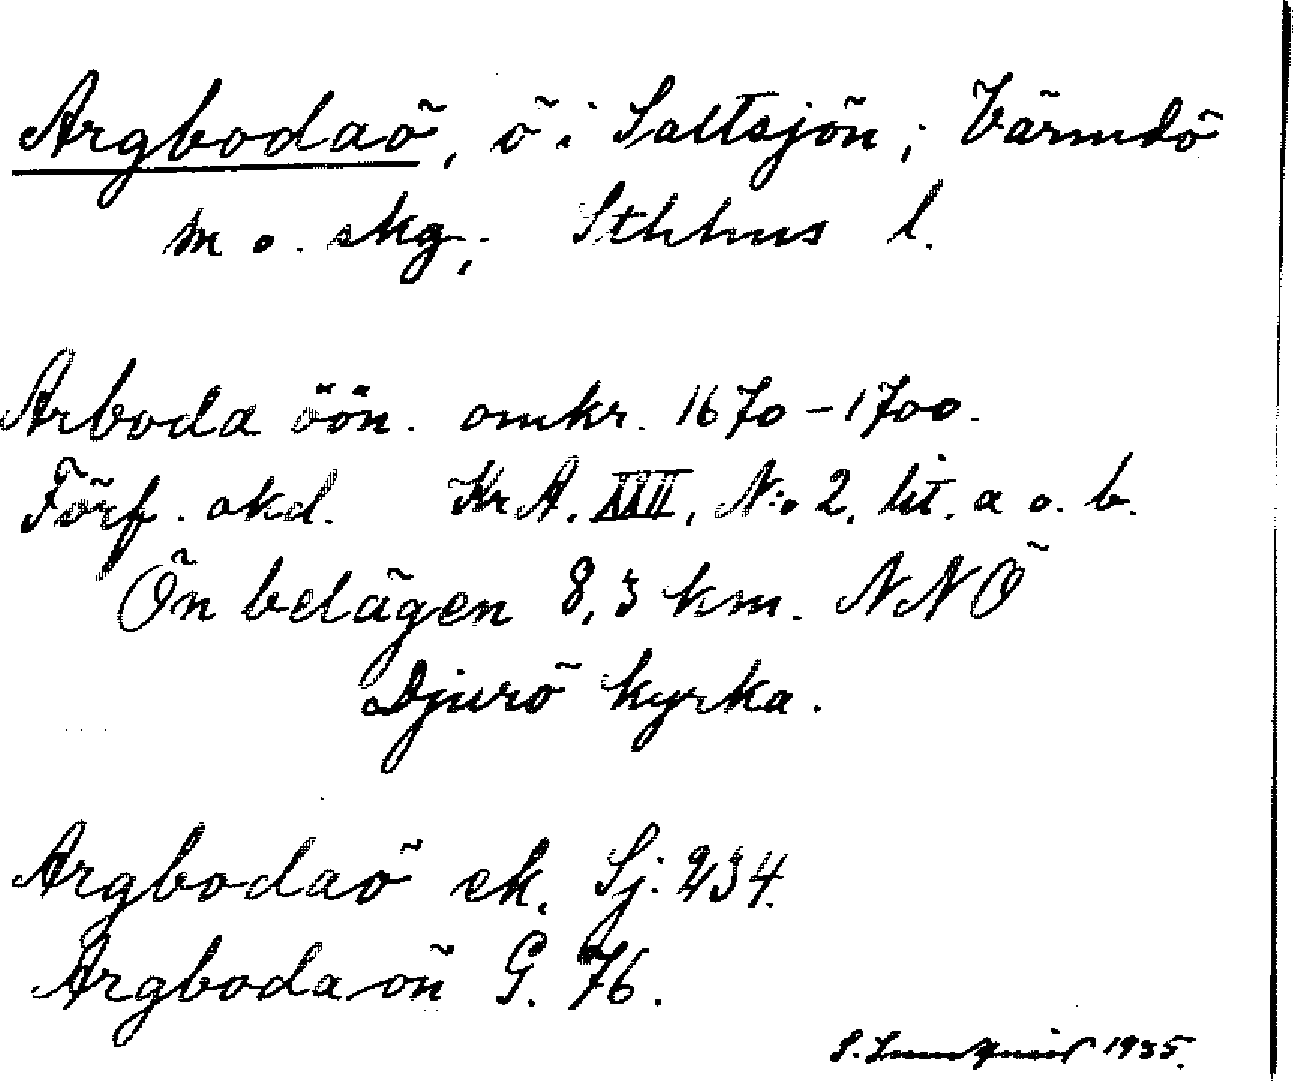 Argbodaö, ö i Saltsjön; Värmdö
m o. skg; Sthlms l.
Arboda öön. omkr. 1670-1700.
Förf. okd. Kr A. XXII, N:o 2, lit. a o. b.
Ön belägen 8,3 km. NNÖ
Djurö kyrka.
Argbodaö ek. Sj. 234.
Argboda ön G. 76.
S. 1935.